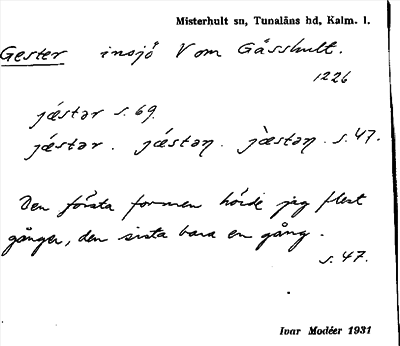 Misterhult sn, Tunaläns hd, Kalm. l.
Gester insjö V om Gåsshult.
1226
jǽstər s. 69.
jǽstər. jǽstən. jæ̀stən. s. 47.
Den första formen hörde jag flest
gånger, den sista bara en gång.
s. 47.
Ivar Modéer 1931